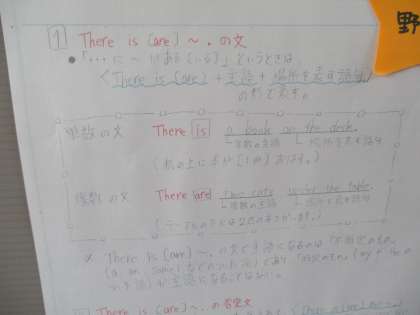 1 There is (are) ～. の文
●「…に～がある(いる)」というときは、
＜There is (are) + 主語 + 場所を表す語句＞
の形で表す。
単数の文 There is a book on the desk.
単数の主語 場所を表す語句
(机の上に本が[1冊]あります。)
複数の文 There are two cats under the table.
複数の主語 場所を表す語句
(テーブルの下には2匹のネコがいます。)
※ There is (are) ～. の文で主語になるものは「不特定のもの」
(a, an, some などがついた語) であり「特定のもの」(my や the の
つく語) が主語になることはない。
There is (are) ～. の否定文
野